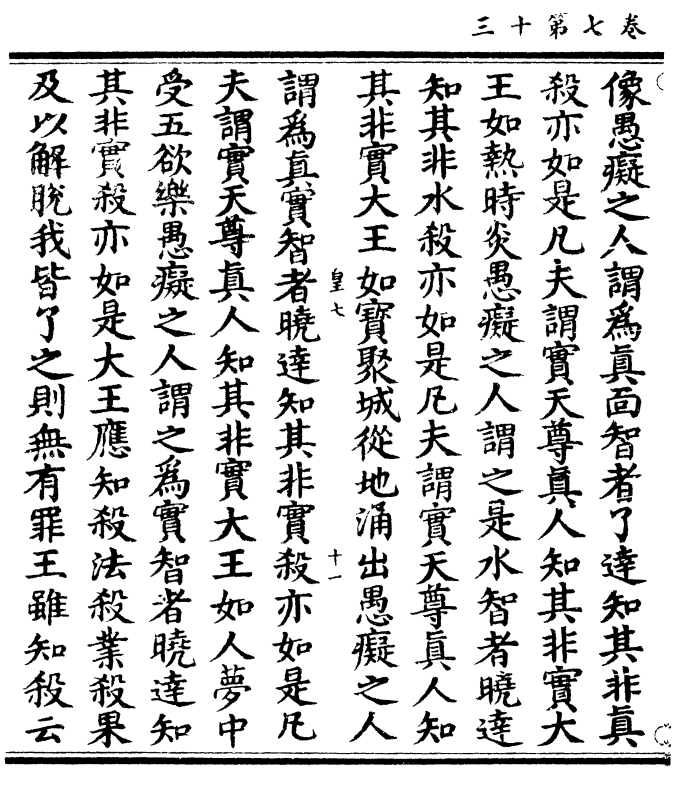 卷七第十三
像愚癡之人謂爲真面智者了達知其非真
殺亦如是凡夫謂實天尊真人知其非實大
王如熱時炎愚癡之人謂之是水智者曉達
知其非水殺亦如是凡夫謂實天尊真人知
其非實大王如寶聚城從地涌出愚癡之人
皇七
十一
謂爲真實智者曉達知其非實殺亦如是凡
夫謂實天尊真人知其非實大王如人夢中
受五欲樂愚癡之人謂之爲實智者曉達知
其非實殺亦如是大王應知殺法殺業殺果
及以解脫我皆了之則無有罪王雖知殺云